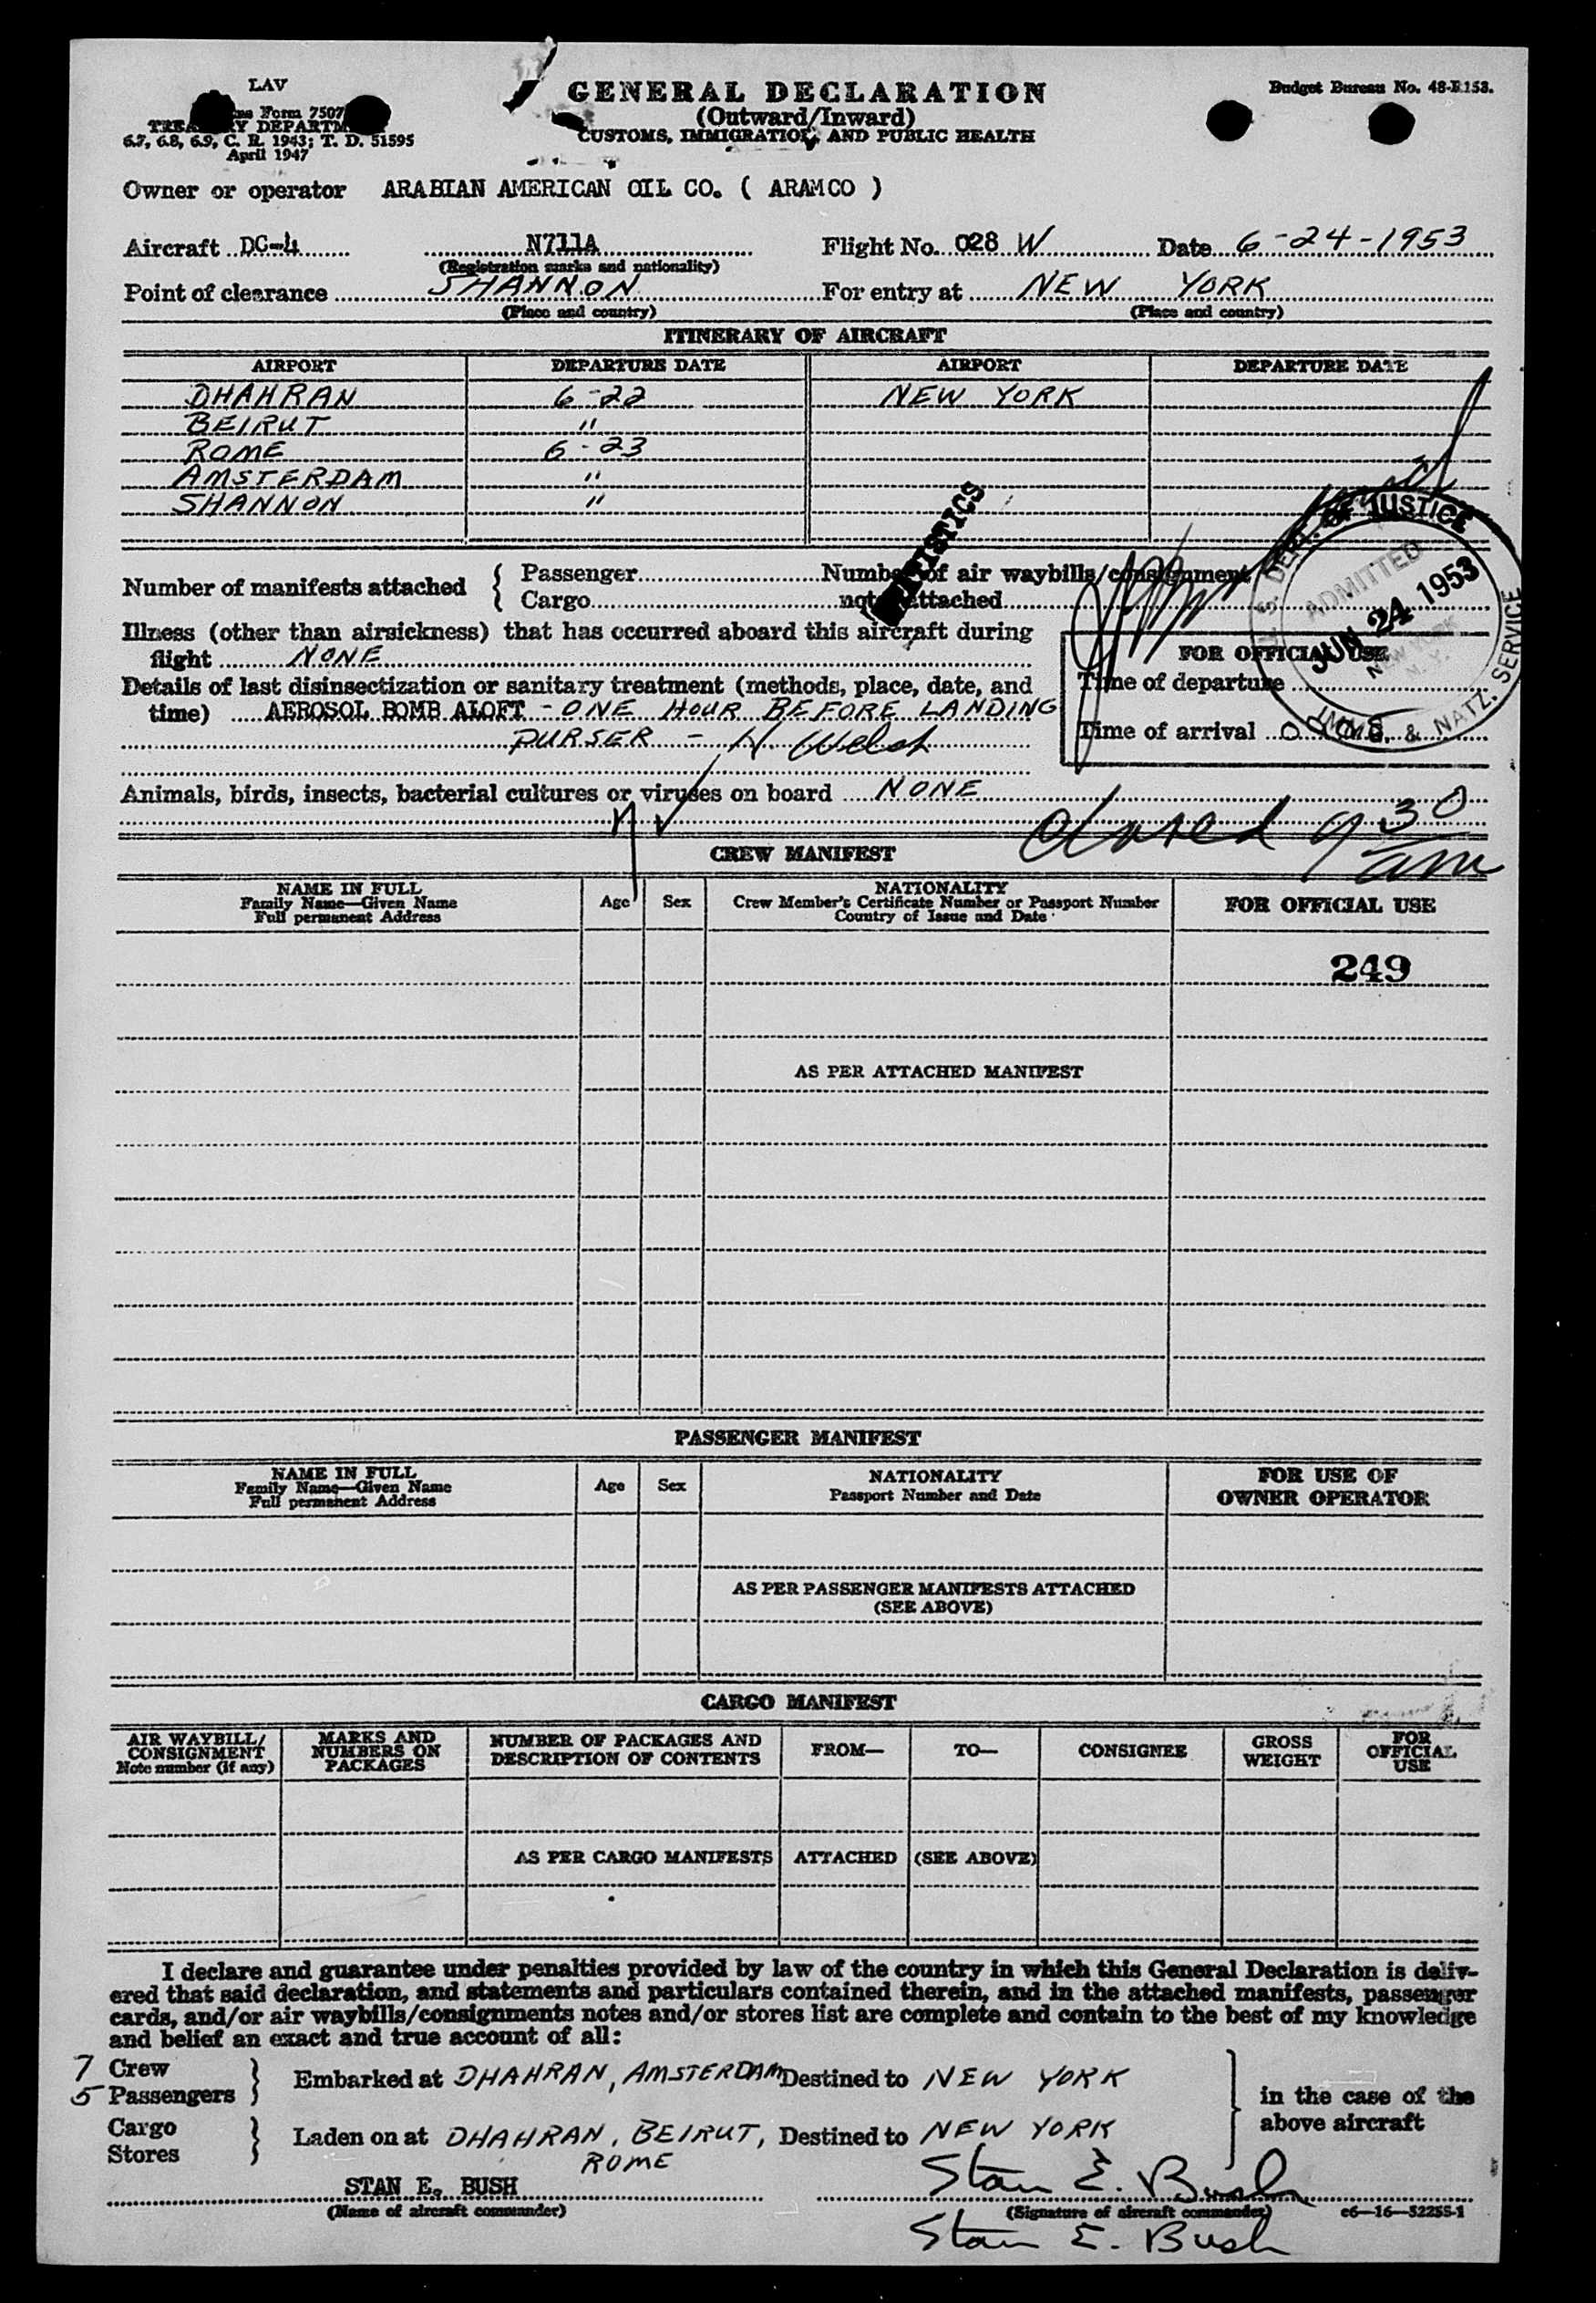 LAV
Form 7507
GENERAL DECLARATION
Budget Bureau No. 48-R153.
(Outward/Inward)
CUSTOMS, IMMIGRATION, AND PUBLIC HEALTH
6.7, 6.8, 6.9, C. R. 1943; T. D. 51595
April 1947
Owner or operator ARABIAN AMERICAN OIL CO. ( ARAMCO )
Aircraft DC-4 N711A Flight No. 028 W Date 6-24-1953
(Registration marks and nationality)
Point of clearance SHANNON For entry at NEW YORK
(Place and country) (Place and country)
ITINERARY OF AIRCRAFT
AIRPORT DEPARTURE DATE AIRPORT DEPARTURE DATE
DHAHRAN 6-22 NEW YORK
BEIRUT "
ROME 6-23
AMSTERDAM "
SHANNON "
STATISTICS
U. S. DEPT. OF JUSTICE
ADMITTED
JUN 24 1953
NEW YORK
N. Y.
IMMG. & NATZ. SERVICE
Number of manifests attached { Passenger Number of air waybills/consignment
Cargo notes attached
Illness (other than airsickness) that has occurred aboard this aircraft during
flight NONE
FOR OFFICIAL USE
Details of last disinsectization or sanitary treatment (methods, place, date, and
Time of departure
time) AEROSOL BOMB ALOFT - ONE HOUR BEFORE LANDING
Time of arrival
PURSER - H Welsh
Animals, birds, insects, bacterial cultures or viruses on board NONE
closed 9 30 am
CREW MANIFEST
NAME IN FULL
Family Name—Given Name
Full permanent Address
Age Sex
NATIONALITY
Crew Member's Certificate Number or Passport Number
Country of Issue and Date
FOR OFFICIAL USE
249
AS PER ATTACHED MANIFEST
PASSENGER MANIFEST
NAME IN FULL
Family Name—Given Name
Full permanent Address
Age Sex
NATIONALITY
Passport Number and Date
FOR USE OF
OWNER OPERATOR
AS PER PASSENGER MANIFESTS ATTACHED
(SEE ABOVE)
CARGO MANIFEST
AIR WAYBILL/
CONSIGNMENT
Note number (if any)
MARKS AND
NUMBERS ON
PACKAGES
NUMBER OF PACKAGES AND
DESCRIPTION OF CONTENTS
FROM— TO— CONSIGNEE
GROSS
WEIGHT
FOR
OFFICIAL
USE
AS PER CARGO MANIFESTS ATTACHED (SEE ABOVE)
I declare and guarantee under penalties provided by law of the country in which this General Declaration is deliv-
ered that said declaration, and statements and particulars contained therein, and in the attached manifests, passenger
cards, and/or air waybills/consignments notes and/or stores list are complete and contain to the best of my knowledge
and belief an exact and true account of all:
7 Crew
5 Passengers } Embarked at DHAHRAN, AMSTERDAM Destined to NEW YORK
in the case of the
above aircraft
Cargo
Stores } Laden on at DHAHRAN, BEIRUT, Destined to NEW YORK
ROME
STAN E. BUSH Stan E. Bush
(Name of aircraft commander) (Signature of aircraft commander) c6—16—52255-1
Stan E. Bush